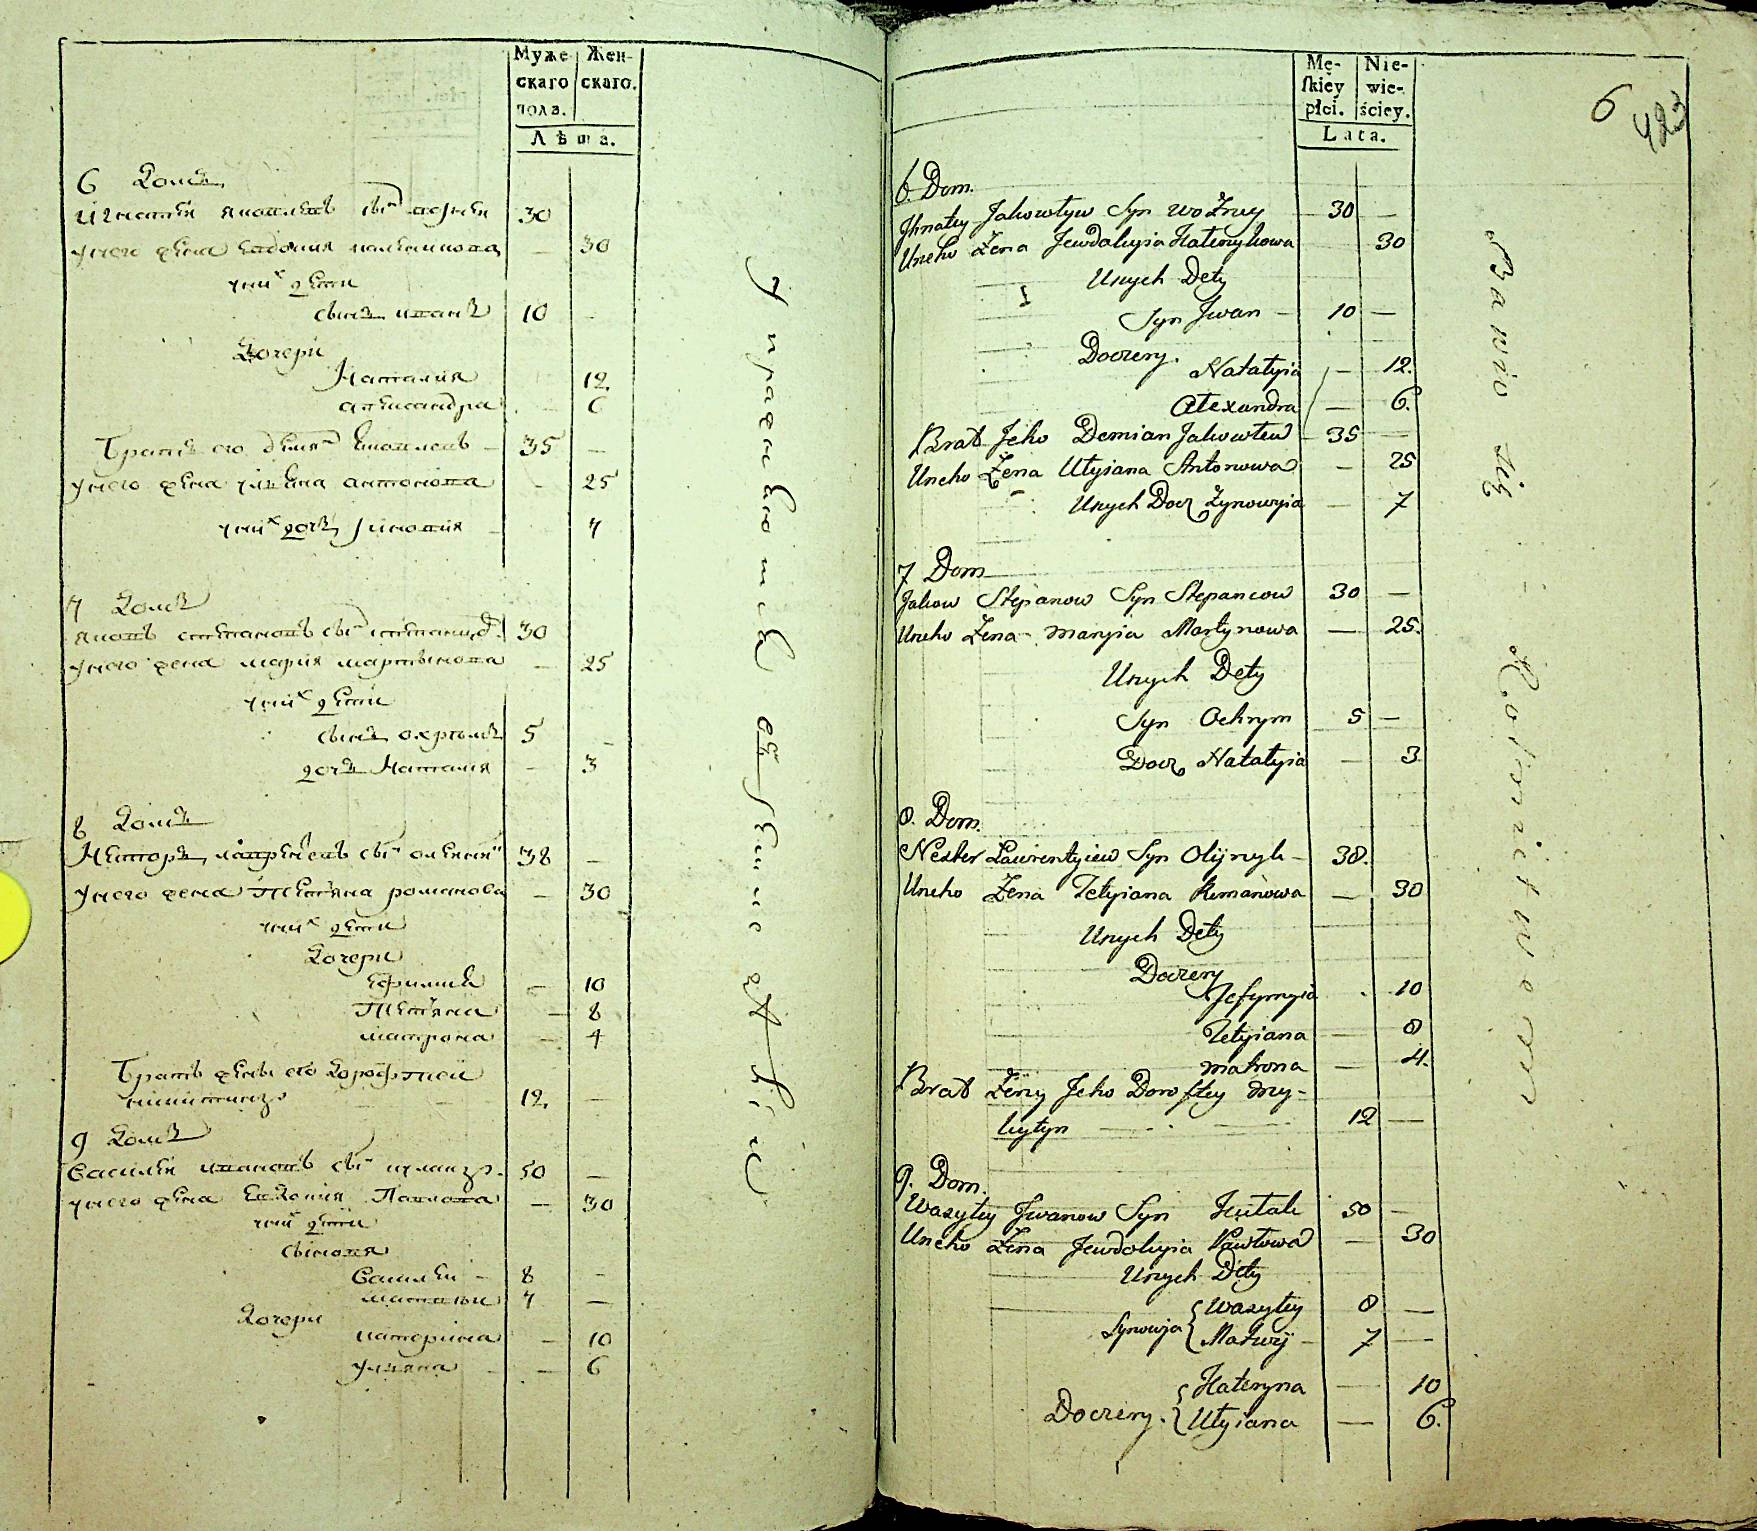 Муже- Жен-
скаго скаго.
пола.
Лѣта.
6 Домъ
Игнатей Яковлевъ сынъ
у него жена Евдокия 30
у них дети
сынъ Иванъ 10
Дочери
Наталия 12
Александра 6
Братъ его Демянъ Яковлевъ 35
у него жена Улияна Антонова 25
у них дочь Зиновия 7
7 Домъ
Яковъ Степановъ сынъ 30
у него жена Мария Мартынова 25
у них дети
сынъ Охримъ 5
дочь Наталия 3
8 Домъ
Несторъ сынъ 38
у него жена Тетяна Романова 30
у них дети
Дочери
Ефимия 10
Тетяна 8
Матрона 4
Братъ жены его Дорофтей
12
9 Домъ
Василей Ивановъ сынъ 50
у него жена Евдокия Павлова 30
у них дети
Сыновя
Василей 8
7
Дочери
Катерина 10
Улияна 6
Упражняются
Mę- Nie-
skiey wie-
płci. ściey.
Lata.
6 423
6. Dom.
Ihnatey Jakowlyw Syn 30 —
Uneho Żena Jewdakyia 30
Unych Dety
Syn Iwan — 10 —
Doczery.
Natalyia — 12.
Alexandra — 6.
Brat Jeho Demian Jakowlew 35 —
Uneho Żena Ulyiana Antonowa — 25
Unych Docz Zynowyia — 7
7 Dom
Jakow Stepanow Syn Stepancow 30 —
Uneho Żena Maryia Martynowa — 25.
Unych Dety
Syn Ochrym 5 —
Docz Natalyia — 3
8. Dom.
Nester Lawrentyiew Syn Olijnyk — 38.
Uneho Żena Tetyiana Romanowa — 30
Unych Dety
Doczery
Jefymyia 10
Tetyiana — 8
Matrona — 4.
Brat Żeny Jeho Doroftey My-
kytyn 12 —
9. Dom.
Wasyley Iwanow Syn 50 —
Uneho Żena Jewdokyia Pawłowa — 30
Unych Dety
Synowja Wasyley 8 —
Matwij — 7 —
Kateryna — 10
Doczery. Ulyiana — 6.
Bawio się Rolnictwem